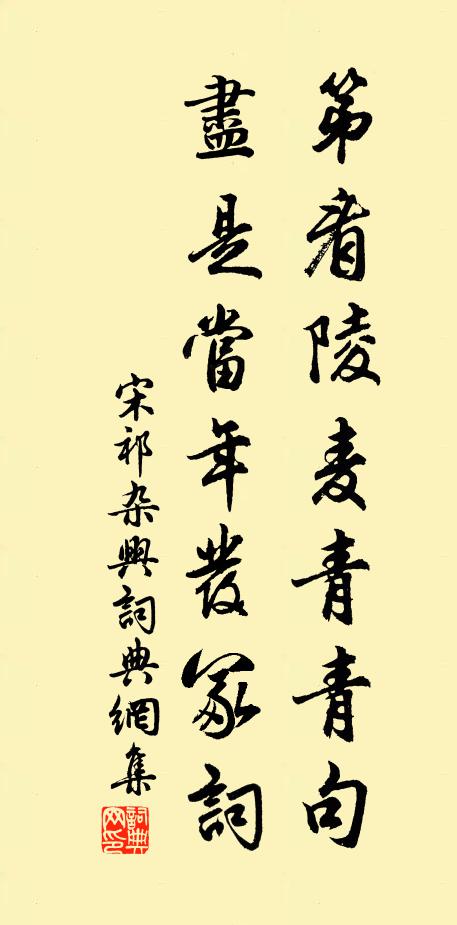 第看陵麦青青句
盡是當年發冢詞
宋祁杂興詞典網集
詞典網印